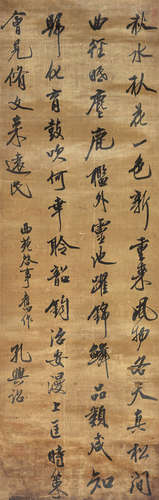 秋水秋花一色新重来風物各天真松間
曲徑鳴麞鹿檻外靈池躍錦鱗品類咸知
歸化育鼓吹何幸聆韶鈞治安漫上匡時策
會見脩文来遠民
西苑啓事舊作
孔興詔